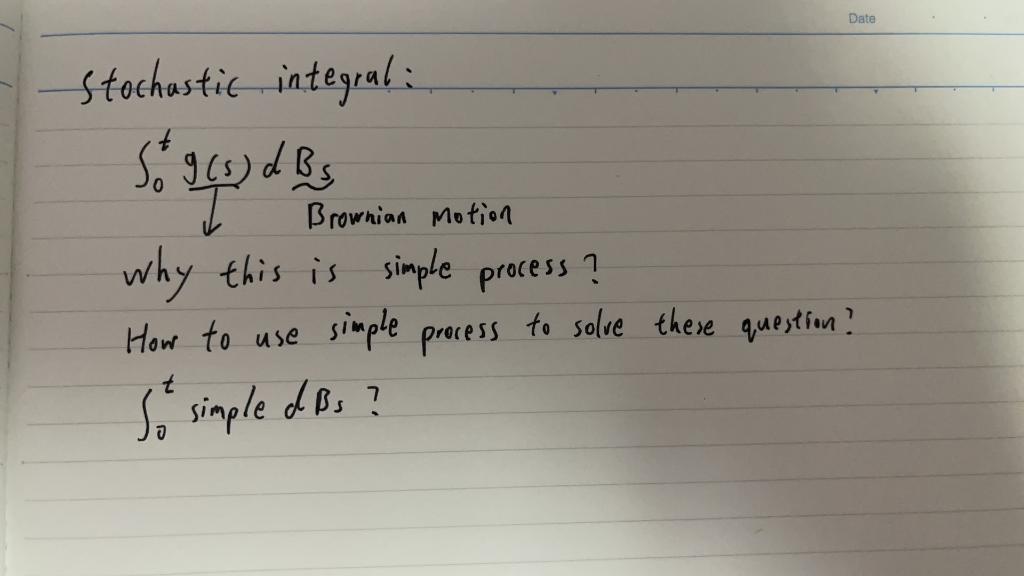 Date
Stochastic integral:
∫₀ᵗ g(s) d Bs
Brownian Motion
Why this is simple process?
How to use simple process to solve these question?
∫₀ᵗ simple d Bs ?